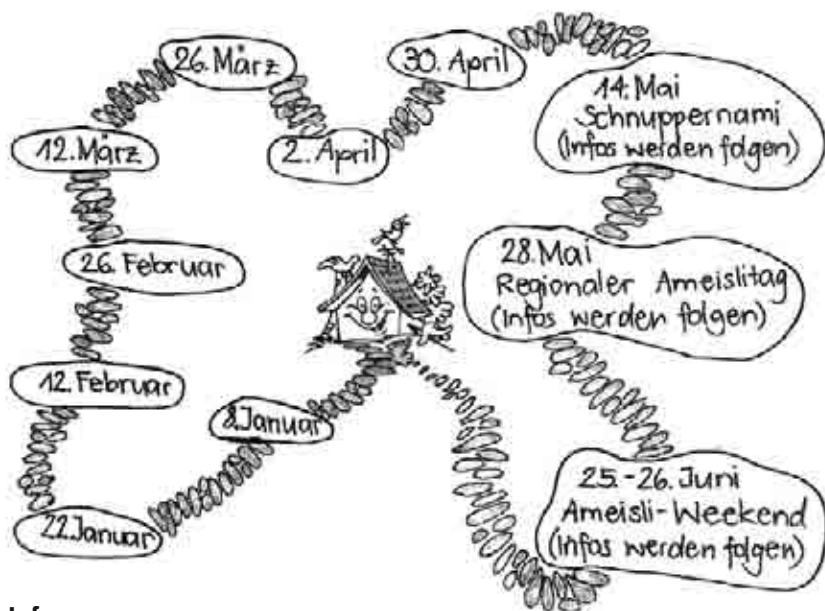 8. Januar
22. Januar
12. Februar
26. Februar
12. März
26. März
2. April
30. April
14. Mai
Schnuppernami
(Infos werden folgen)
28. Mai
Regionaler Ameislitag
(Infos werden folgen)
25.-26. Juni
Ameisli-Weekend
(Infos werden folgen)